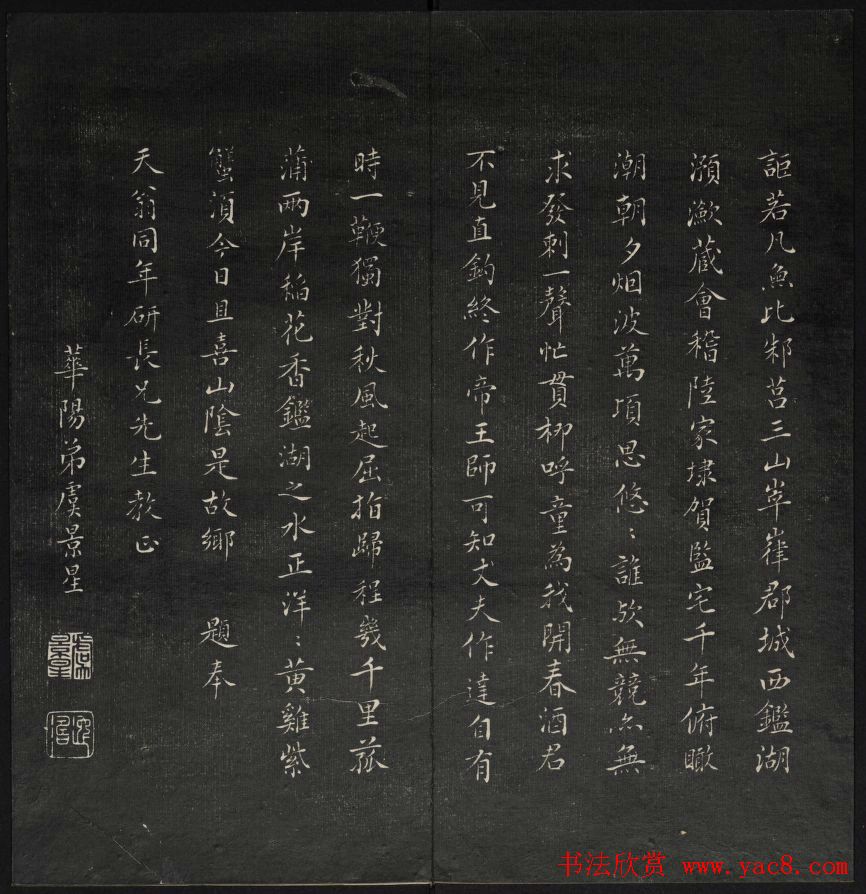 詎若凡魚比邾莒三山崒嵂郡城西鑑湖
澦瀲蔵會稽陸家埭賀監宅千年俯瞰
潮朝夕烟波萬頃思悠〻誰欤無競亦無
求發刺一聲忙貫柳呼童為我開春酒君
不見直鈎終作帝王師可知丈夫作達自有
時一鞭獨對秋風起屈指歸程幾千里菰
蒲兩岸稻花香鑑湖之水正洋〻黃雞紫
蟹須今日且喜山陰是故鄉 題奉
天翁同年研長兄先生教正
華陽弟虞景星
虞景星
書法欣赏 www.yac8.com